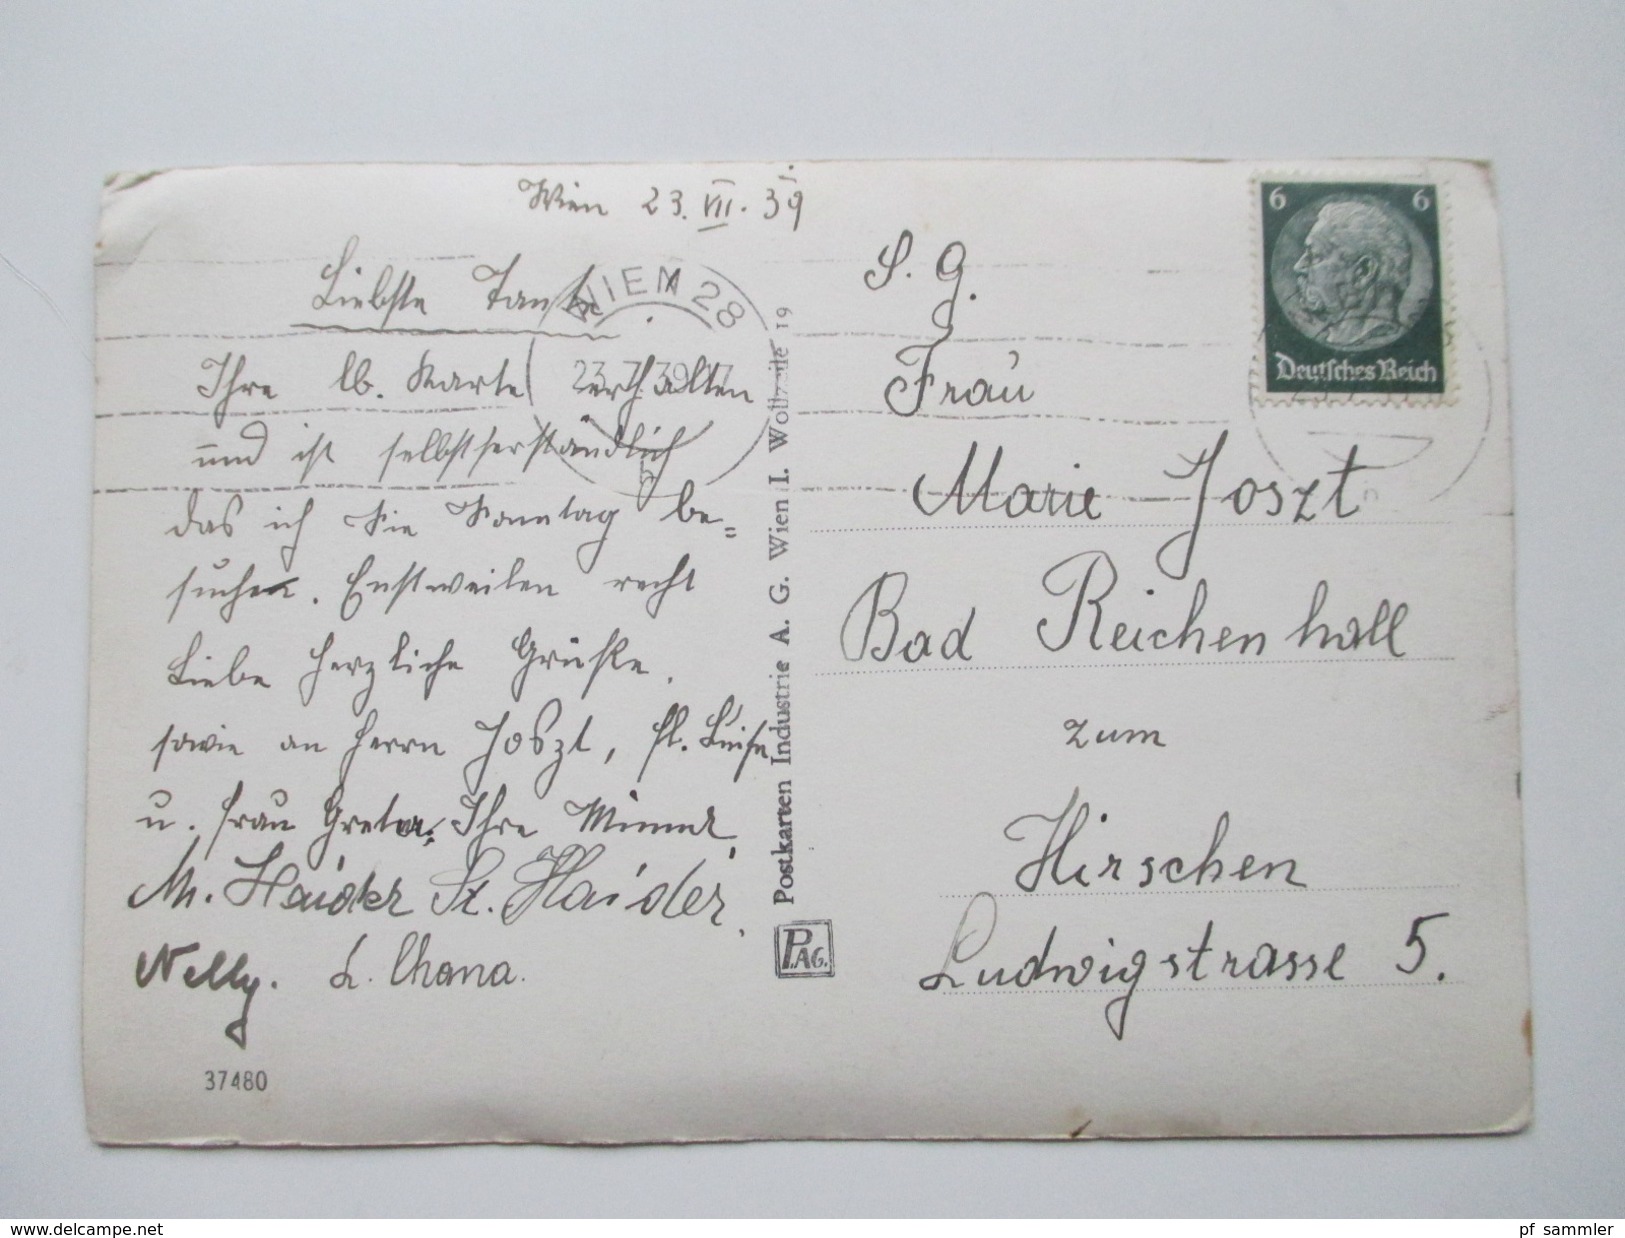 Wien 23. VII. 39
Liebste Tante
Ihre lb. Karte erhalten
und ist selbstverständlich
das ich Sie Sonntag be=
suchen. Einstweilen recht
Liebe herzliche Grüße.
sowie an Herrn Joszt, Fl. Luise
u. Frau Greta. Ihre
M. Haider St. Haider
Nelly. L. Chana.
37480
WIEN 28
23.7.39 17
Postkarten Industrie A. G. Wien I. Wollzeile 19
P.AG.
6 6
Deutsches Reich
S. G.
Frau
Marie Joszt
Bad Reichenhall
zum
Hirschen
Ludwigstrasse 5.
www.delcampe.net
pf_sammler